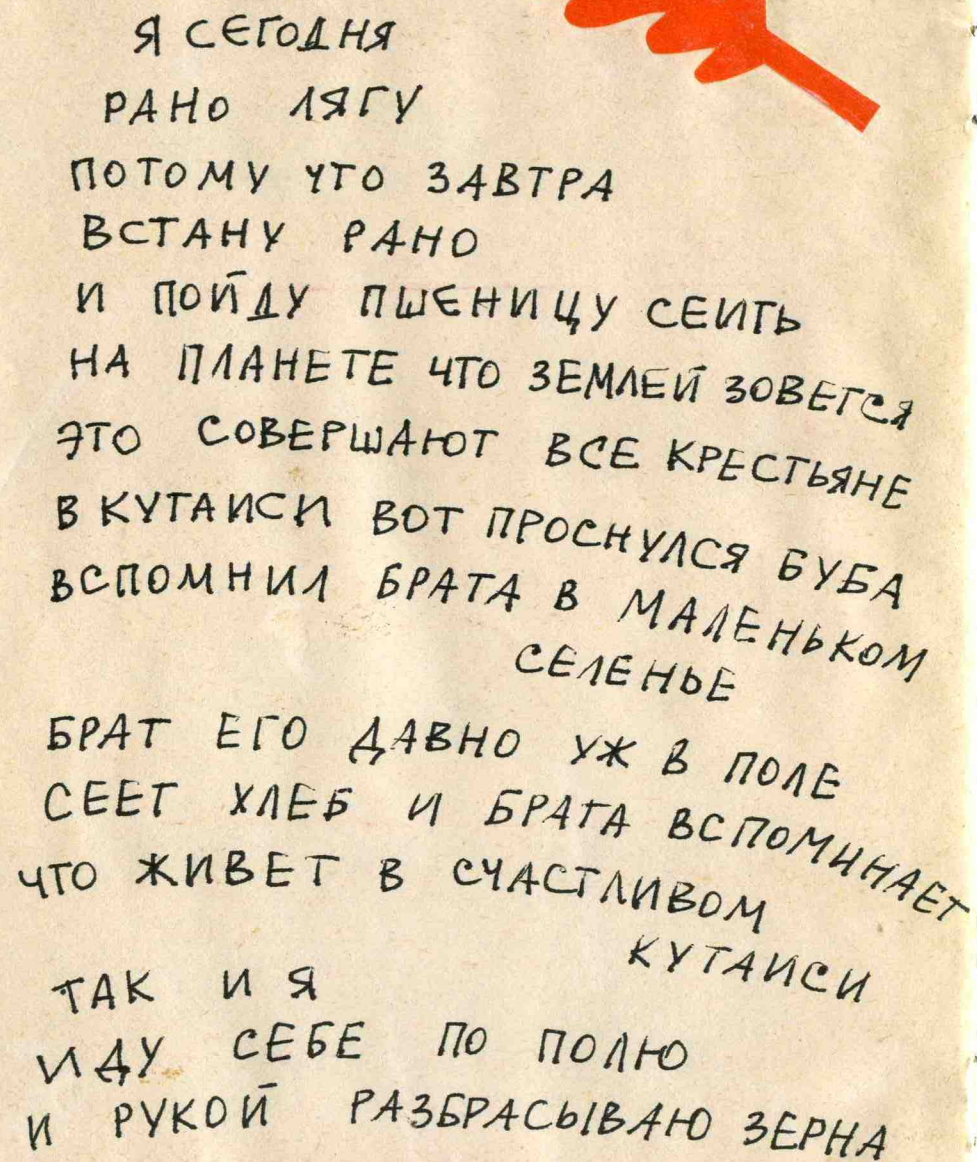 Я СЕГОДНЯ
РАНО ЛЯГУ
ПОТОМУ ЧТО ЗАВТРА
ВСТАНУ РАНО
И ПОЙДУ ПШЕНИЦУ СЕИТЬ
НА ПЛАНЕТЕ ЧТО ЗЕМЛЕЙ ЗОВЕТСЯ
ЭТО СОВЕРШАЮТ ВСЕ КРЕСТЬЯНЕ
В КУТАИСИ ВОТ ПРОСНУЛСЯ БУБА
ВСПОМНИЛ БРАТА В МАЛЕНЬКОМ
СЕЛЕНЬЕ
БРАТ ЕГО ДАВНО УЖ В ПОЛЕ
СЕЕТ ХЛЕБ И БРАТА ВСПОМИНАЕТ
ЧТО ЖИВЕТ В СЧАСТЛИВОМ
КУТАИСИ
ТАК И Я
ИДУ СЕБЕ ПО ПОЛЮ
И РУКОЙ РАЗБРАСЫВАЮ ЗЕРНА